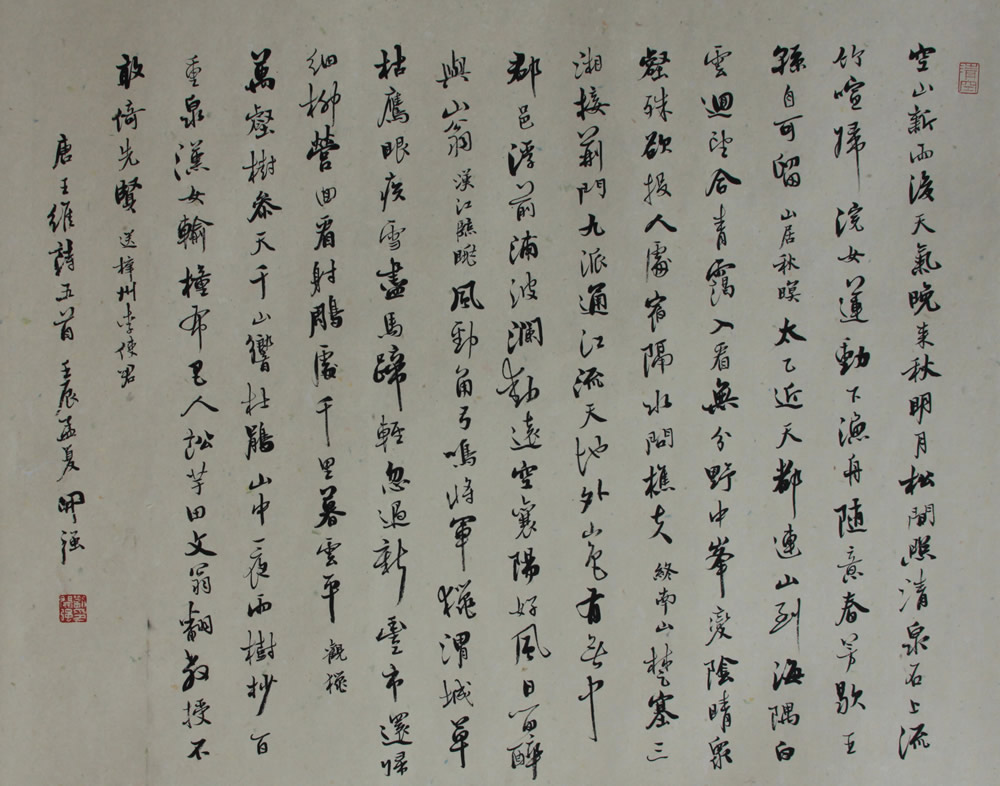 空山新雨後天氣晚来秋明月松間照清泉石上流
竹喧歸浣女蓮動下漁舟隨意春芳歇王
孫自可留 山居秋暝 太乙近天都連山到海隅白
雲迴望合青靄入看無分野中峯變陰晴衆
壑殊欲投人處宿隔水問樵夫 終南山 楚塞三
湘接荊門九派通江流天地外山色有無中
郡邑浮前浦波瀾動遠空襄陽好風日留醉
與山翁 漢江臨眺 風勁角弓鳴將軍獵渭城草
枯鷹眼疾雪盡馬蹄輕忽過新豐市還歸
細柳營回看射鵰處千里暮雲平 觀獵
萬壑樹參天千山響杜鵑山中一夜雨樹杪百
重泉漢女輸橦布巴人訟芋田文翁翻教授不
敢倚先賢 送梓州李使君
唐王維詩五首 壬辰孟夏